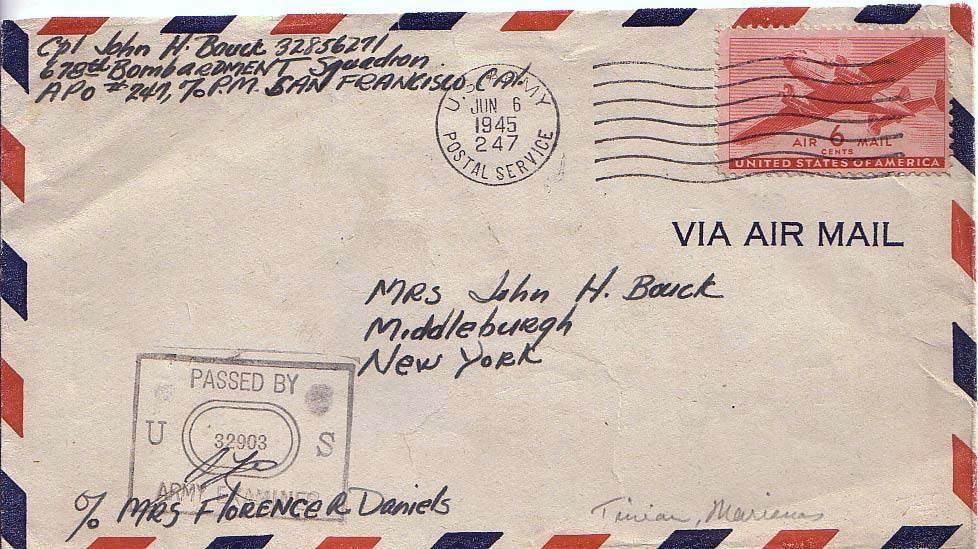 Cpl John H. Bouck 32856271
678th Bombardment Squadron
APO #247, c/o P.M. San Francisco, Cal.
U.S. ARMY
JUN 6
1945
247
POSTAL SERVICE
AIR 6 MAIL
CENTS
UNITED STATES OF AMERICA
VIA AIR MAIL
Mrs John H. Bouck
Middleburgh
New York
PASSED BY
U 32903 S
ARMY EXAMINER
c/o Mrs Florence R Daniels
Tinian, Marianas